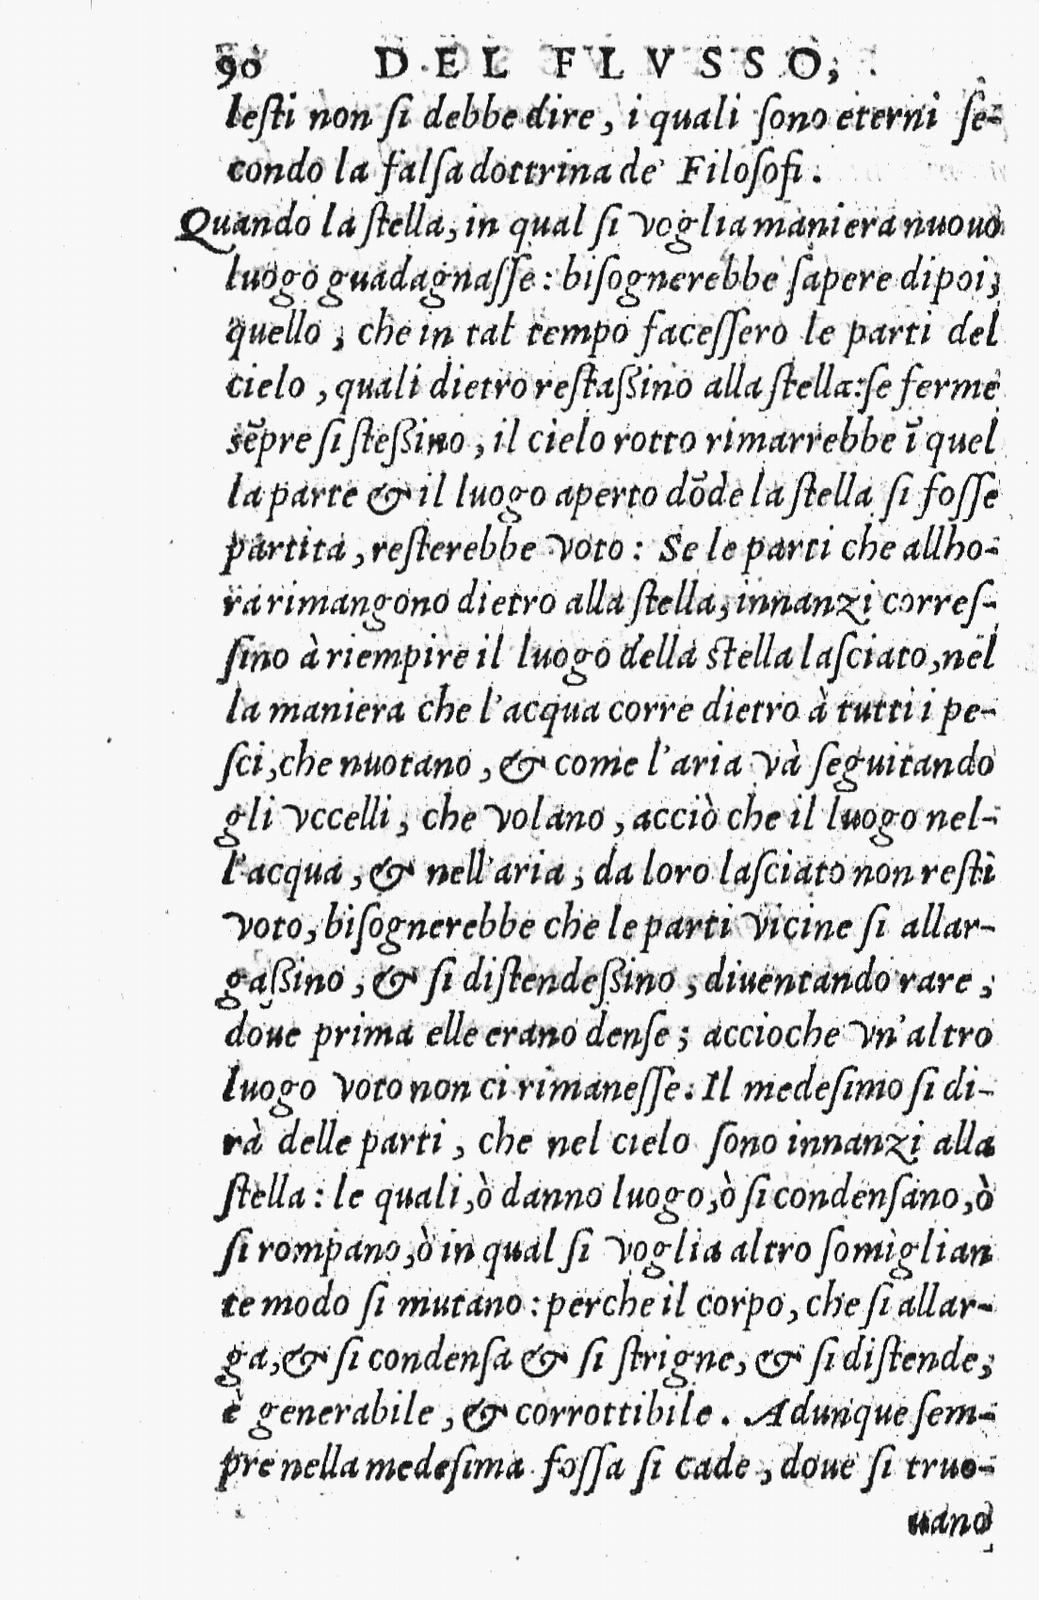 90 DEL FLVSSO,
leſti non ſi debbe dire, i quali ſono eterni ſe-
condo la falſa dottrina de' Filoſofi.
Quando la ſtella, in qual ſi voglia maniera nuouo
luogo guadagnaſſe: biſognerebbe ſapere dipoi,
quello, che in tal tempo faceſſero le parti del
cielo, quali dietro reſtaßino alla ſtella: ſe ferme
sẽpre ſi ſteßino, il cielo rotto rimarrebbe ĩ quel
la parte & il luogo aperto dõde la ſtella ſi foſſe
partita, reſterebbe voto: Se le parti che allho-
ra rimangono dietro alla ſtella, innanzi correſ-
ſino à riempire il luogo della ſtella laſciato, nel
la maniera che l'acqua corre dietro à tutti i pe-
ſci, che nuotano, & come l'aria và ſeguitando
gli vccelli, che volano, acciò che il luogo nel-
l'acqua, & nell'aria, da loro laſciato non reſti
voto, biſognerebbe che le parti vicine ſi allar-
gaßino, & ſi diſtendeßino, diuentando rare,
doue prima elle erano denſe; accioche vn'altro
luogo voto non ci rimaneſſe. Il medeſimo ſi di-
rà delle parti, che nel cielo ſono innanzi alla
ſtella: le quali, ò danno luogo, ò ſi condenſano, ò
ſi rompano, ò in qual ſi voglia altro ſomiglian
te modo ſi mutano: perche il corpo, che ſi allar-
ga, & ſi condenſa & ſi ſtrigne, & ſi diſtende,
è generabile, & corrottibile. Adunque ſem-
pre nella medeſima foſſa ſi cade, doue ſi truo-
uano